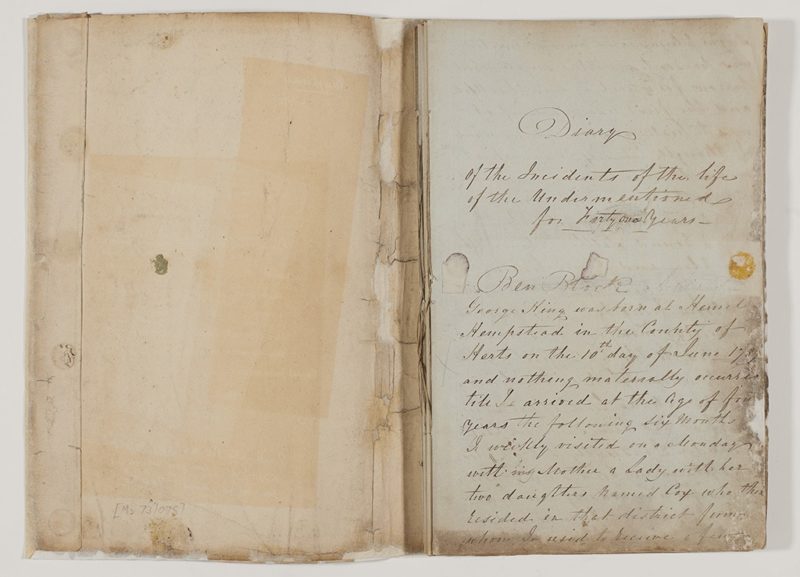 [MS 73/075]
Diary
Of the Incidents of the life
of the Undermentioned
for Forty one Years —
Ben Block
George King was born at Hemel
Hempstead in the County of
Herts on the 10th day of June
and nothing materially occurred
till I arrived at the Age of four
Years the following Six Months
I weekly visited on a Monday
with my Mother a Lady with her
two daughters named Cox who then
resided in that district from
whom I used to receive a